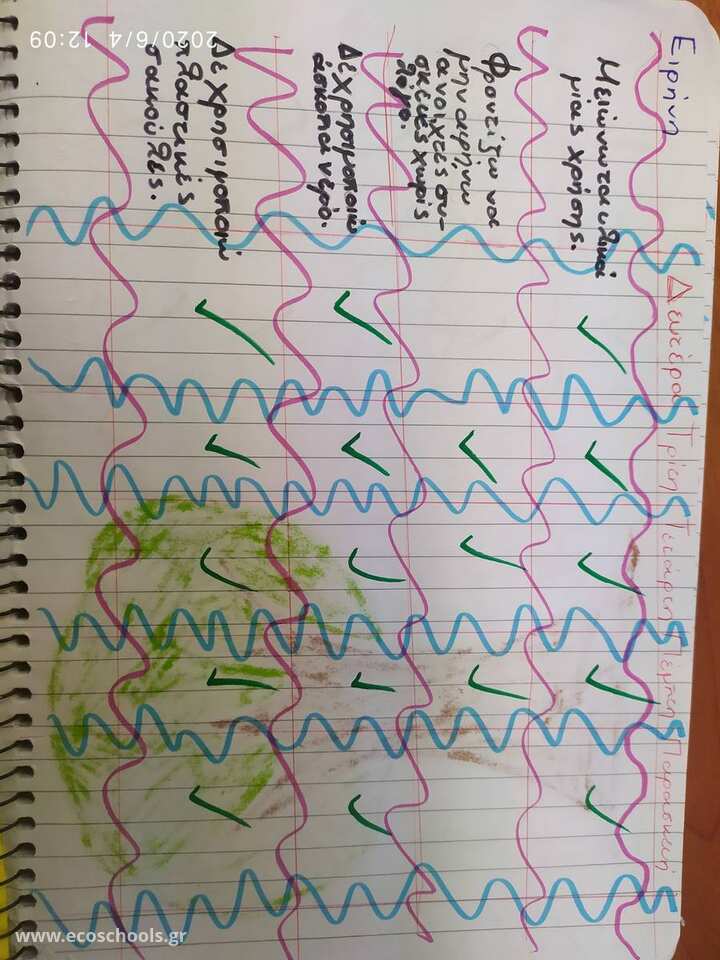 Ειρήνη
Δευτέρα Τρίτη Τετάρτη Πέμπτη Παρασκευή
Μειώνω τα υλικά
μιας χρήσης.
Φροντίζω να
μην αφήνω
ανοιχτές συ-
σκευές χωρίς
λόγο.
Δέ χρησιμοποιώ
άσκοπα νερό.
Δέ χρησιμοποιώ
πλαστικές
σακούλες.
2020/6/4 12:09
www.ecoschools.gr